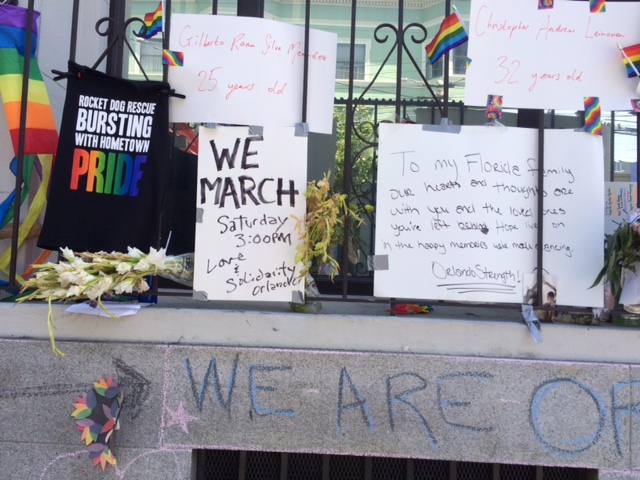 Gilberto Ramon Silva Menendez
25 years old
Christopher Andrew Leinonen
32 years old
ROCKET DOG RESCUE
BURSTING
WITH HOMETOWN
PRIDE
WE
MARCH
Saturday
3:00PM
Love
&
Solidarity
Orlando
To my Florida family
our hearts and thoughts are
with you and the loved ones
you've left behind. Hope live on
in the happy memories we made dancing.
Orlando Strength!
WE ARE OF